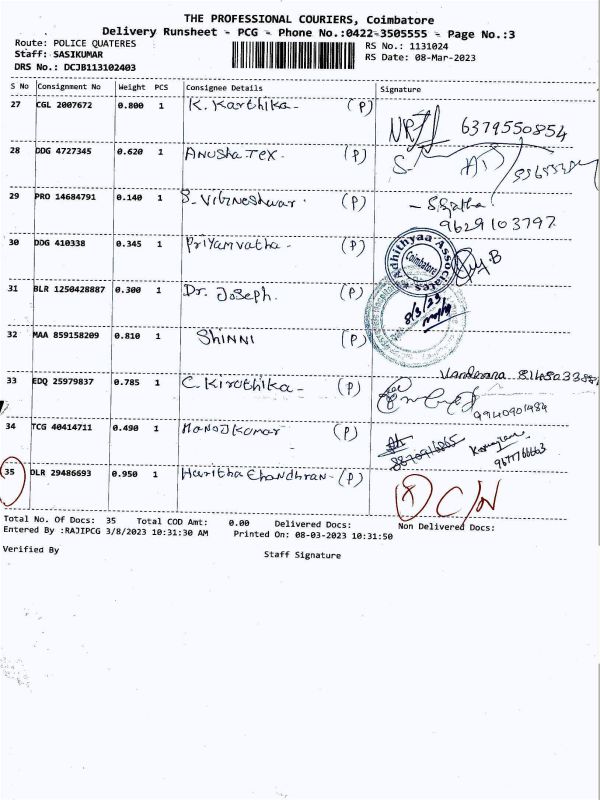 THE PROFESSIONAL COURIERS, Coimbatore
Delivery Runsheet - PCG - Phone No.:0422-3505555 - Page No.:3
Route: POLICE QUATERES
RS No.: 1131024
Staff: SASIKUMAR
RS Date: 08-Mar-2023
DRS No.: DCJB113102403
S No Consignment No Weight PCS Consignee Details Signature
27 CGL 2007672 0.800 1 K. Karthika - (P)
6379550854
28 DDG 4727345 0.620 1 Anusha Tex. (P)
29 PRO 14684791 0.140 1 S. Vigneshwar. (P)
9629103797
30 DDG 410338 0.345 1 Priyamvatha - (P)
Adhithyaa Associates
Coimbatore
31 BLR 1250428887 0.300 1 Dr. Joseph. (P)
8/3/23
32 MAA 859158209 0.810 1 SHINNI (P)
33 EDQ 25979837 0.785 1 C. Kiruthika - (P)
9940901484
34 TCG 40414711 0.490 1 Manojkumar (P)
9677766663
35 DLR 29486693 0.950 1 Haritha Chandhran - (P)
C/N
Total No. Of Docs: 35 Total COD Amt: 0.00 Delivered Docs: Non Delivered Docs:
Entered By :RAJIPCG 3/8/2023 10:31:30 AM Printed On: 08-03-2023 10:31:50
Verified By
Staff Signature